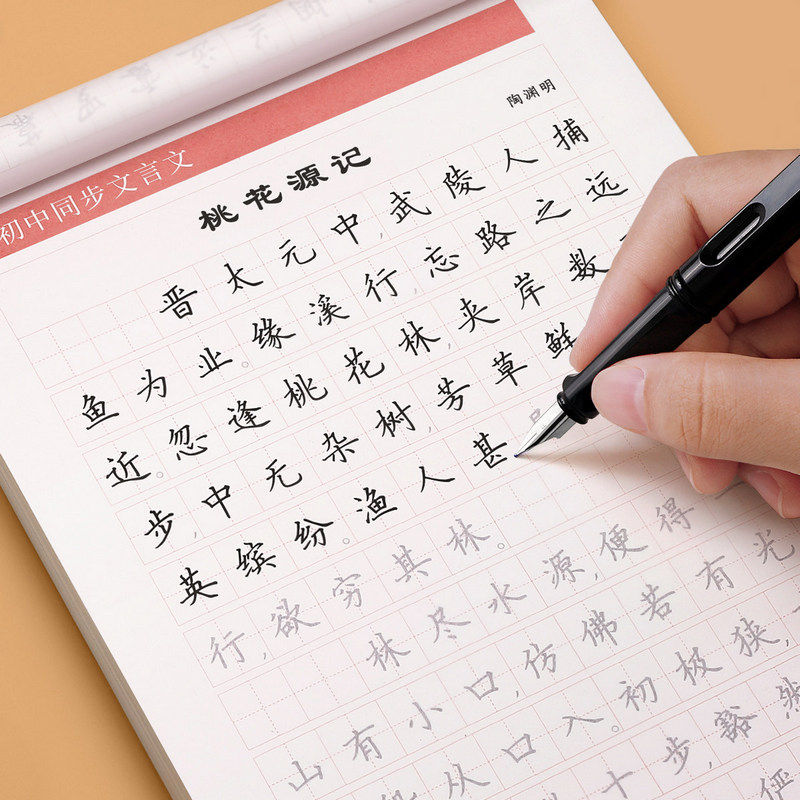 初中同步文言文
陶渊明
桃花源记
晋太元中,武陵人捕
鱼为业。缘溪行,忘路之远
近。忽逢桃花林,夹岸数
步,中无杂树,芳草鲜
英缤纷。渔人甚
行,欲穷其林。
林尽水源,便得
山有小口,仿佛若有光
从口入。初极狭,
十步,豁然
俨